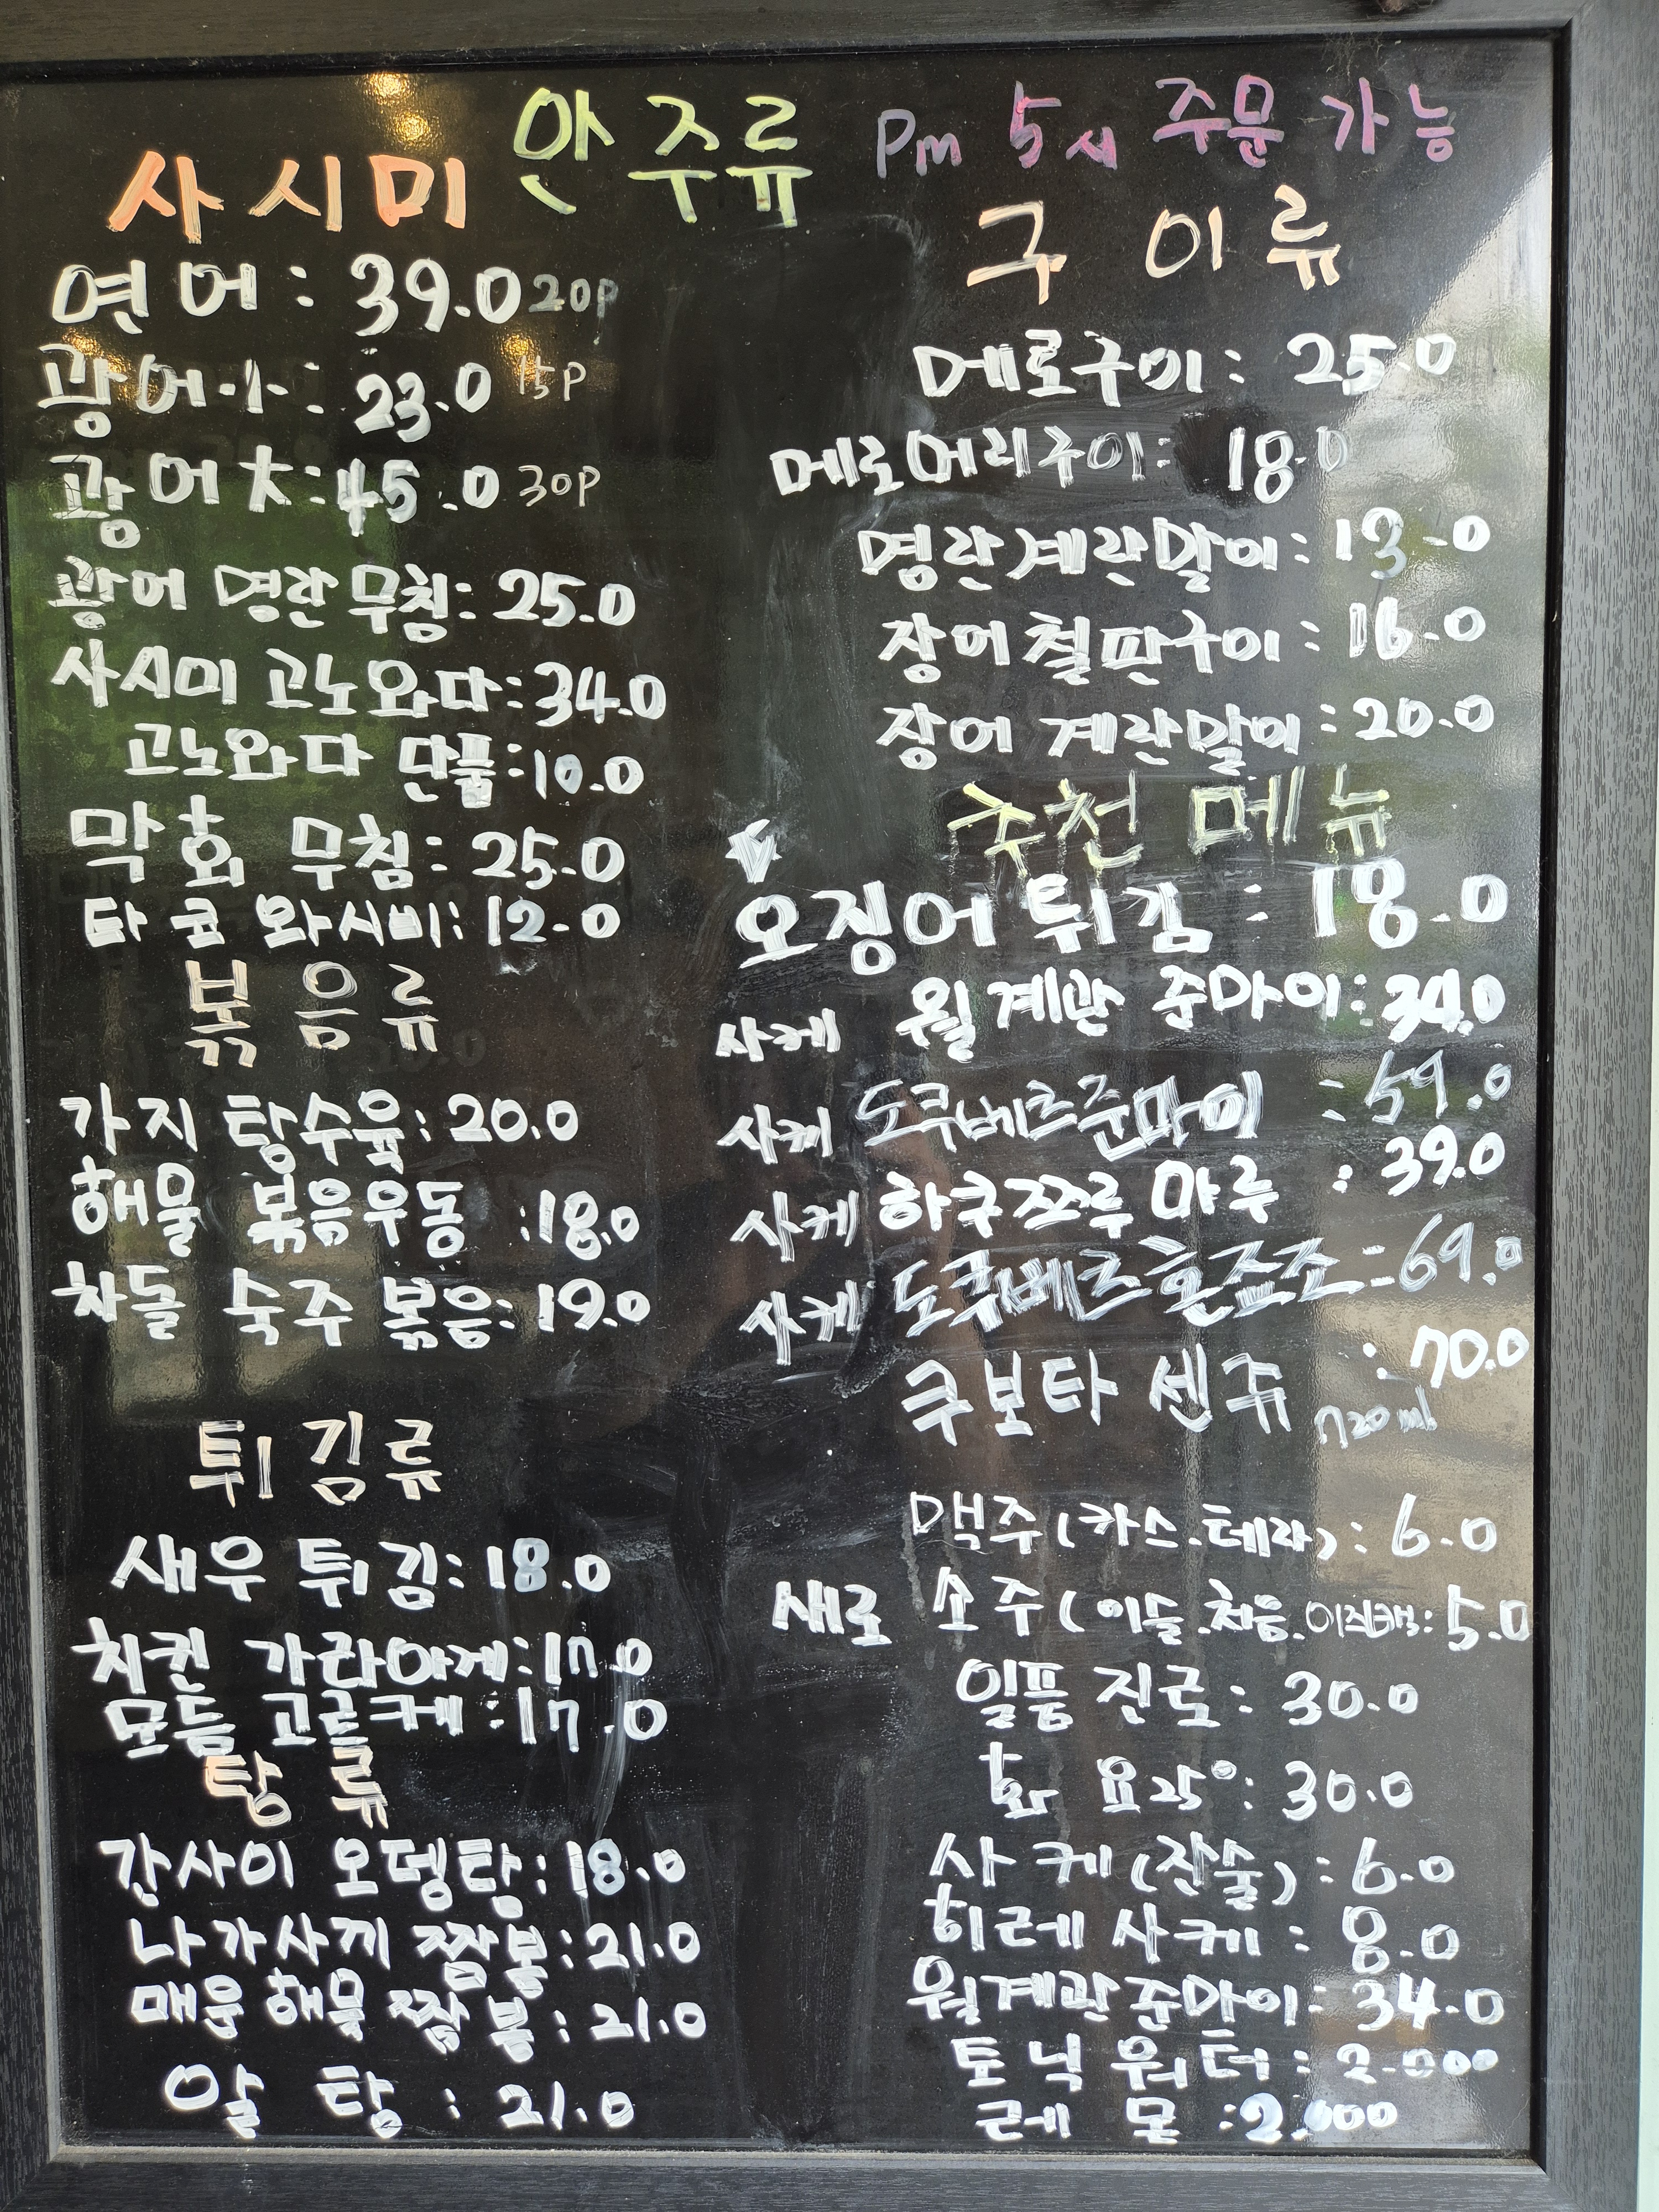 안주류 Pm 5시 주문 가능
사시미
연어 : 39.0 20p
광어小 : 23.0 15p
광어大 : 45.0 30p
광어 명란 무침 : 25.0
사시미 고노와다 : 34.0
고노와다 단품 : 10.0
막회 무침 : 25.0
타코 와사비 : 12.0
볶음류
가지 탕수육 : 20.0
해물 볶음우동 : 18.0
차돌 숙주 볶음 : 19.0
튀김류
새우 튀김 : 18.0
치킨 가라아게 : 17.0
모듬 고르케 : 17.0
탕류
간사이 오뎅탕 : 18.0
나가사끼 짬뽕 : 21.0
매운 해물 짬뽕 : 21.0
알탕 : 21.0
구이류
메로구이 : 25.0
메로머리구이 : 18.0
명란계란말이 : 13.0
장어철판구이 : 16.0
장어 계란말이 : 20.0
추천 메뉴
오징어 튀김 : 18.0
사케 월계관 준마이 : 34.0
사케 도쿠베츠준마이 : 59.0
사케 하쿠쯔루 마루 : 39.0
사케 도쿠베츠혼죠조 - 69.0
쿠보타 센쥬 : 70.0
720ml
맥주(카스.테라) : 6.0
새로 소주(이슬.처음.이즈백 : 5.0
일품 진로 : 30.0
화요25° : 30.0
사케(잔술) : 6.0
히레 사케 : 8.0
월계관준마이 : 34.0
토닉 워터 : 2.000
레몬 : 2.000